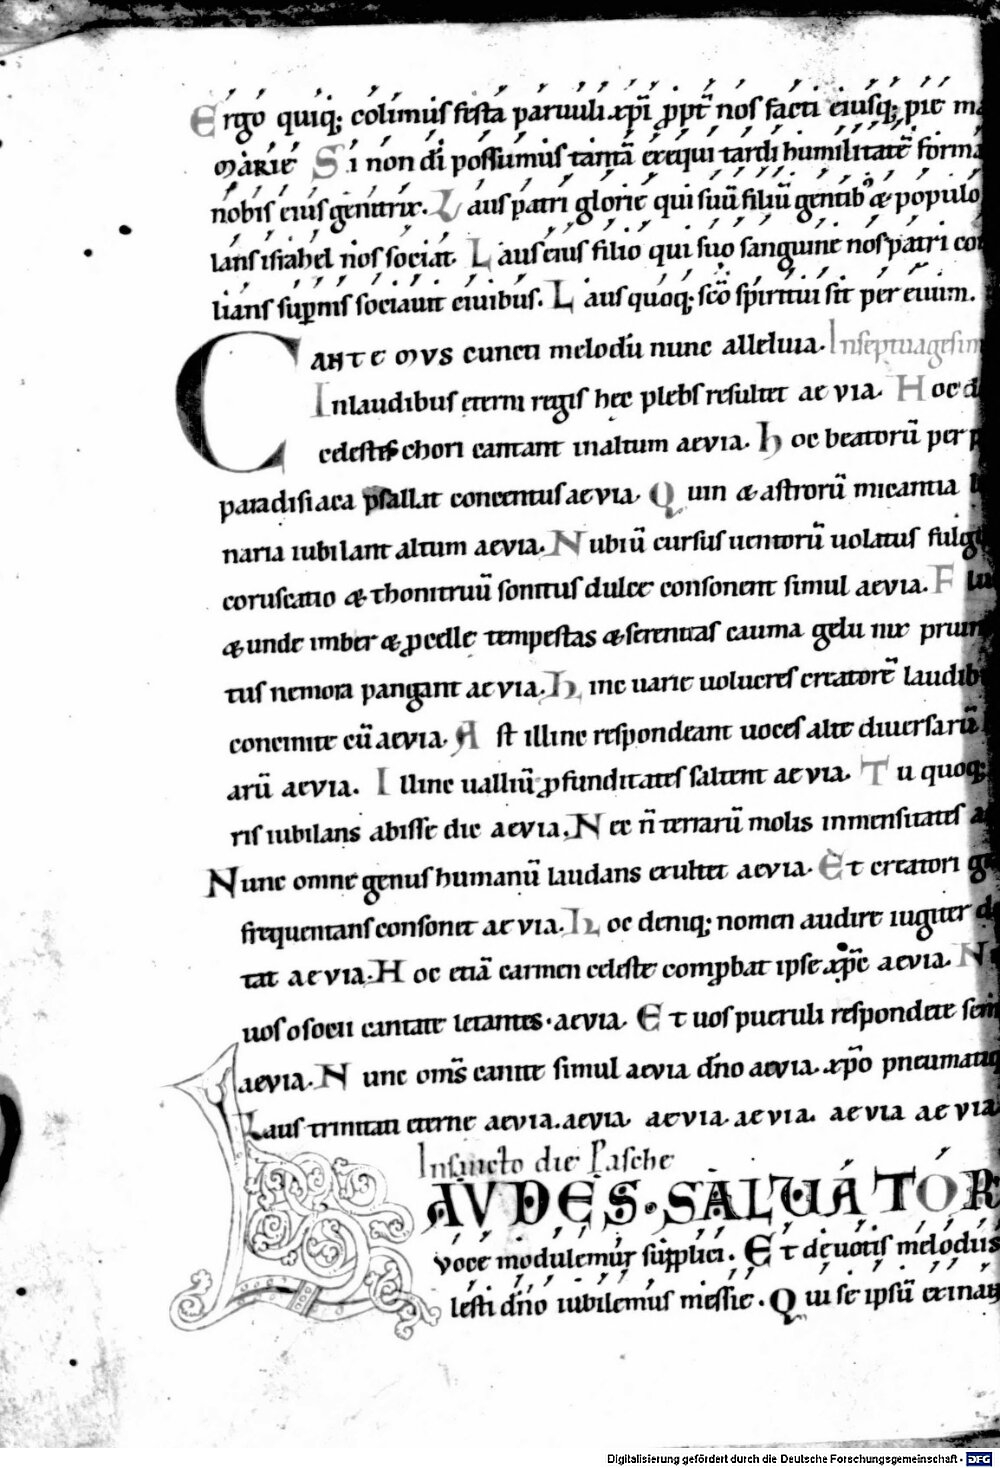 Ergo quiq; colimus festa paruuli xp̄i ꝓpt̄ nos facti eiusq; pie
MARIE Si non dī possumus tantā exequi tardi humilitatē forma
nobis eius genitrix. Laus patri glorie qui suū filiū gentib; & populo
lans israhel nos sociat. Laus eius filio qui suo sanguine nos patri
lians suꝑnis sociauit ciuibus. Laus quoq; scō spiritui sit per euum.
CANTEMVS cuncti melodū nunc alleluia. In septuagesim
In laudibus eterni regis hec plebs resultet aevia. Hoc
celestes chori cantant in altum aevia. hoc beatorū per
paradisiaca psallat concentus aevia. Quin & astrorū micantia
naria iubilant altum aevia. Nubiū cursus uentorū uolatus fulg
coruscatio & thonitruū sonitus dulce consonent simul aevia. F
& unde imber & ꝓcelle tempestas & serenitas cauma gelu nix pruin
tus nemora pangant aevia. hinc uarie uolucres creatorē laudib
concinite cū aevia. Ast illinc respondeant uoces alte diuersarū
arū aevia. Illinc ualliū ꝓfunditates saltent aevia. Tu quoq;
ris iubilans abisse dic aevia. Nec n̄ terrarū molis inmensitates
Nunc omne genus humanū laudans exultet aevia. Et creatori
frequentans consonet aevia. hoc deniq; nomen audire iugiter
tat aevia. Hoc etiā carmen celeste comꝓbat ipse xp̄c aevia. N
uos o socii cantate letantes. aevia. Et uos pueruli respondete
aevia. Nunc om̄s canite simul aevia dn̄o aevia. xp̄o pneumatiq
Laus trinitati eterne aevia. aevia. aevia. aevia. aevia aevia
In sancto die Pasche
LAVDES. SALUATOR
voce modulemur supplici. Et deuotis melodiis
lesti dn̄o iubilemus messie. Qui se ipsū exinan
Digitalisierung gefördert durch die Deutsche Forschungsgemeinschaft - DFG